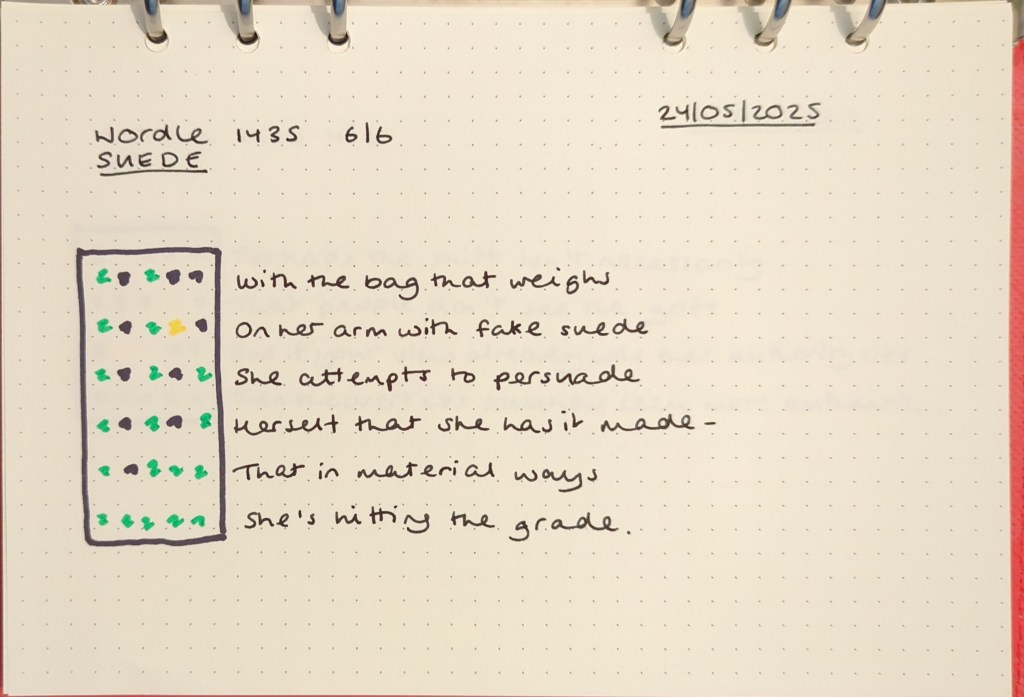 24/05/2025
Wordle 1435 6/6
SUEDE
With the bag that weighs
On her arm with fake suede
She attempts to persuade
Herself that she has it made -
That in material ways
She's hitting the grade.